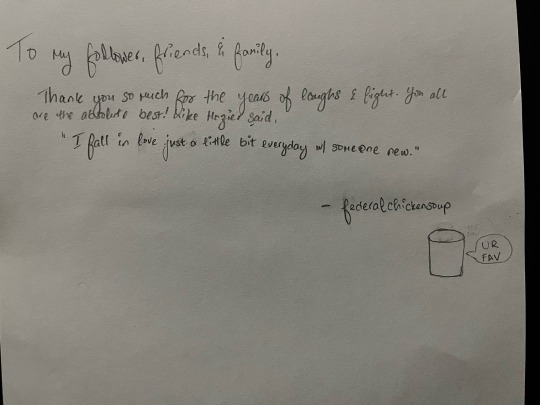 To my follower, friends, & family.
Thank you so much for the years of laughs & light. You all
are the absolute best! Like Hozier said,
"I fall in love just a little bit everyday w/ someone new."
- federalchickensoup
UR
FAV